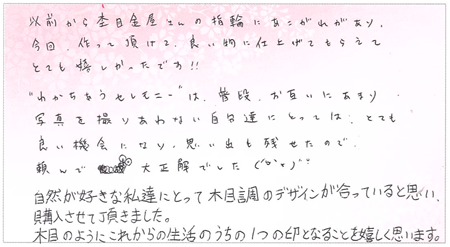 以前から杢目金屋さんの指輪にあこがれがあり、
今回、作って頂けて、良い物に仕上げてもらえて
とても嬉しかったです!!
"わかちあうセレモニー"は、普段、お互いにあまり
写真を撮りあわない自分達にとっては、とても
良い機会になり、思い出も残せたので、
頼んで大正解でした(^o^)
自然が好きな私達にとって木目調のデザインが合っていると思い、
購入させて頂きました。
木目のようにこれからの生活のうちの1つの印となることを嬉しく思います。